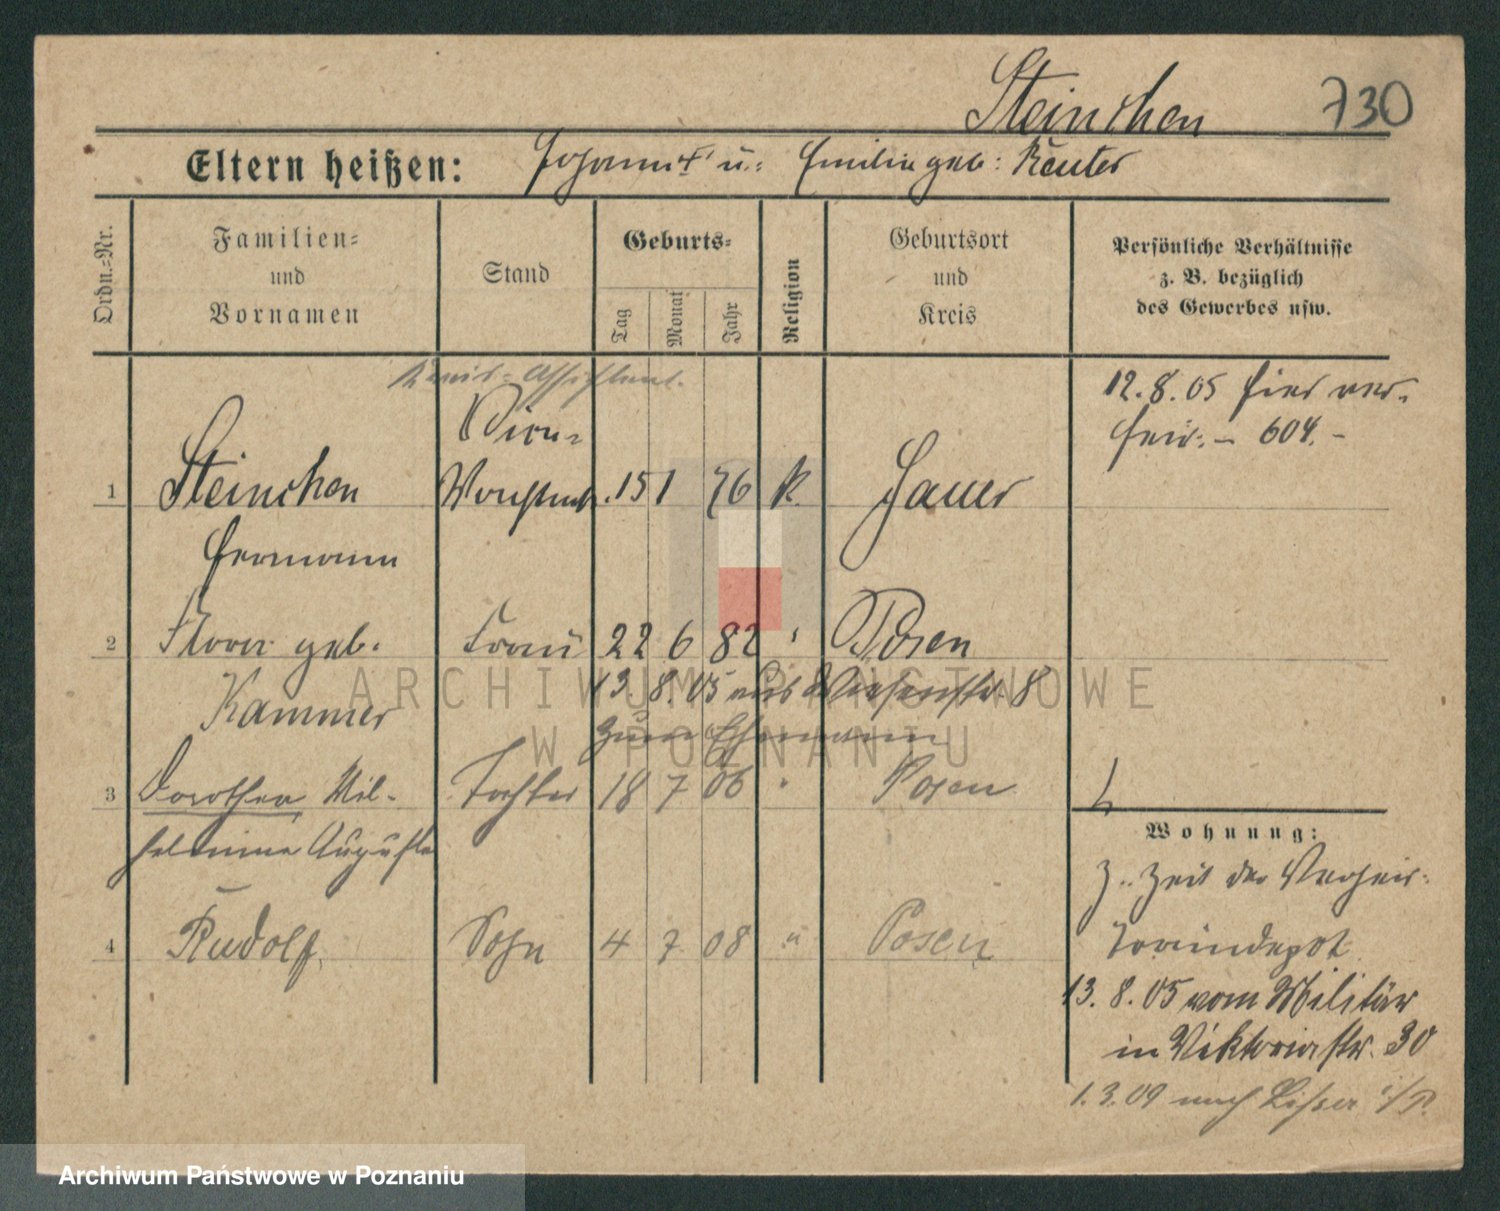 Steinchen 730
Eltern heißen: Johann † u: Emilie geb: Reuter
Ordn.-Nr.
Familien- und Vornamen
Stand
Geburts-
Tag Monat Jahr
Religion
Geburtsort und Kreis
Persönliche Verhältnisse z. B. bezüglich des Gewerbes usw.
Assistent.
12. 8. 05 hier ver-
heir: – 604. –
1 Steinchen 15 1 76 k. Jauer
Hermann
2 Flora geb. Frau 22 6 82 " Posen
Kammer
13. 8. 05 aus Wiesenstr. 8
zum Ehemann
3 Dorothea Wil- Tochter 18 7 06 " Posen
helmine Auguste
4 Rudolf Sohn 4 7 08 " Posen
Wohnung:
z. Zeit der Verheir:
Traindepot
13. 8. 05 vom Militär
in Viktoriastr. 30
1. 3. 09 nach Lissa i/P.
ARCHIWUM PAŃSTWOWE
W POZNANIU
Archiwum Państwowe w Poznaniu